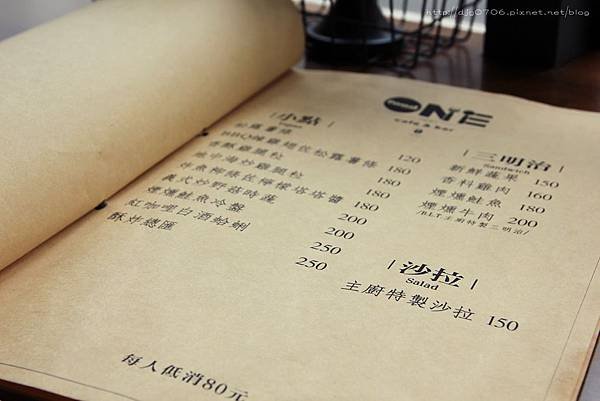 http://djj0706.pixnet.net/blog
ONE
cafe & bar
|小點|
松露薯條 120
BBQ辣雞翅佐松露薯條 180
香酥雞腿松 180
地中海炒雞腿松 180
炸魚柳條佐檸檬塔塔醬 180
義式炒野菇時蔬 200
煙燻鮭魚冷盤 200
紅咖哩白酒蛤蜊 250
酥炸總匯 250
|三明治|
Sandwich
新鮮蔬果 150
香料雞肉 160
煙燻鮭魚 180
煙燻牛肉 200
/B.L.T主廚特製三明治/
|沙拉|
Salad
主廚特製沙拉 150
每人低消80元